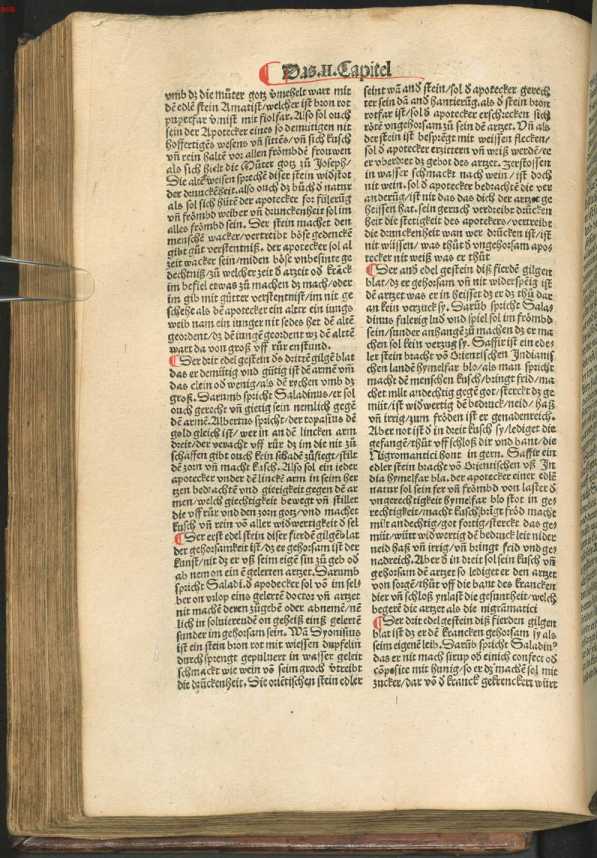 Das .II. Capitel
vmb dz die můter gotz vmehelt wart mit
dē edlē stein Amatist/welcher ist bron rot
purperfar vmist mir fiolfar. Also sol ouch
sein der Apotecker eines so demutigen nit
hoffertigēs wesens vn̄ sittēs/vn̄ sich kusch
vn̄ rein haltē vor allen frōmbdē frouwen
als sich hielt die Můter gotz zů Joseph/
Die altē weisen sprechē diser stein widstot
der drucklēheit. also ouch dz bůch đ natur
als sol sich hůtē der apotecker for fülerüg
vn̄ frōmbd weiber vn̄ drunckenheit sol im
alles frōmbd sein. Der stein machet den
menschē wacker/vertreibt bōse gedenckē
gibt gůt verstentniß. der apotecker sol al
zeit wacker sein/miden bōse vnbesinte ge
dechtniß/zů welcher zeit đ artzeit oď krāck
im befiel etwas zů machen dz mach/oder
im gib mit gůtter verstentnist/im nit ge
schehe als dē apotecker ein alter ein iungs
weib nam ein iunger nit sedes het dē altē
geordent/dz dē iungē geordent wz dē altē
wart da von groß vff rür enstund.
Der drit edel gestein ds drittē gilgē blat
das er demůtig vnd gůtig ist dē armē vn̄m
das clein od wenig/als dē rychen vmb dz
groß. Darumb spricht Saladinus/er sol
ouch gerecht vn̄ gietig sein nemlich gegē
dē armē. Albertus spricht/der topasius dē
gold gleich ist/wer in an dē lincken arm
dreit/der veracht vff rür dz im die nit zů
schaffen gibt ouch kein schadē zůfiegt/stilt
dē zorn vn̄ macht kusch. Also sol ein ieder
apotecker vnder dē linckē arm in seim her
tzen bedrachtē vnd gietigkeit gegen dē ar
men/welch giechtigkeit bewegt vn̄ stillet
die vff rür vnd den zorn gotz/vnd machet
kusch vn̄ rein vō aller widwertigkeit đ sel
Der erst edel stein diser fierdē gilgē blat
der gehorsamkeit ist/dz er gehorsam ist der
kunst/nit dz er vß seim eigē sin zů geb od
ab nem on ein ē gelerten artzet. Darumb
spricht Saladi. đ apodecker sol vō im sel
ber on vrlop eins gelertē doctor vn̄ artzet
nit machē deren zůgebē oder abnemē/nē
lich in soluierendē on geheiß eins gelertē
sunder im gehorsam sein. Wā Dyonisius
ist ein stein bron rot mit wiessen dupfelin
durch sprengt gepuluert in wasser geleit
schmackt wie wein vō seim groch vtreibt
die drückenheit. Die orietischen stein edler
seint wā and̄ stein/sol đ apotecker gerech
ter sein dā and̄ hantierūg. als đ stein bron
rotfar ist/sol đ apotecker erschrecken sich
rōtē vngehorsam zů sein dē artzet. Vn̄ als
der stein ist besprēgt mit weissen flecken/
sol đ apotecker erzittern vn̄ weiß werdē/ve
er vberdret dz gebot des artzet. Zerstossen
in wasser schmackt nach wein/ist doch
nit wein. sol đ apotecker bedrachtē die ver
anderūg/ist nit das das dich der artzet ge
heissen hat. sein geruch verdreibt drückē
heit die stetigkeit des apotekers/vertreibt
die drunckenheit wan wer drücken ist/ist
nit wüssen/was thůt đ vngehorsam apo
tecker nit weiß was er thůt
Der and̄ edel gestein diß fierdē gilgen
blat/dz er gehorsam vn̄ nit widerspēig ist
dē artzet was er in heisset dz er dz thů dar
an kein verzuck sy. Darūb spricht Sala
dinus fulerig lud vnd spiel sol im frōmbd
sein/sunder anhangē zů machen dz er ma
chen sol kein verzug sy. Saffir ist ein ede
ler stein bracht vō Orientischen Indianis
chen landē hymelfar blo/als man spricht
macht dē menschen kusch/bringt frid/ma
chet milt andechtig gegē got/sterckt dz ge
müt/ist widwertig dē bedruck/neid/haß
vn̄ irrig/zum frōden ist er genadenreich.
Aber not ist đ in dreit kusch sy/lediget die
gefangē/thůt vff schloß dir vnd bant/die
Nigromantici hont in gern. Saffir ein
edler stein bracht vō Orientischen vß In
dia hymelfar bla. der apotecker einer edlē
natur sol sein fer vn̄ frōmbd von laster đ
vngerechtigkeit hymelfar blo stot in ge
rechtigkeit/macht kusch/brigt frōd mache
milt andechtig/got fortig/sterckt das ge
müt/würt widwertig dē bedruck leit nider
neid haß vn̄ irrig/vn̄ bringt frid vnd ge
nadreich. Aber đ in dreit sol sein kusch vn̄
gehorsam dē artzet so lediget er den artzet
von sorgē/thůt vff die bant des krancken
dier vn̄ schloß ynlast die gesuntheit/welch
begerē die artzet als die nigramatici
Der drit edel gestein diß fierden gilgen
blat ist dz er dē krancken gehorsam sy als
seim eigenē leib. Darüb spricht Saladin9
das er nit mach sirup oß einich confect oď
cōposite mit hunig/so er dz machē sol mit
zucker/dar vō đ kranck gekrenckert würt